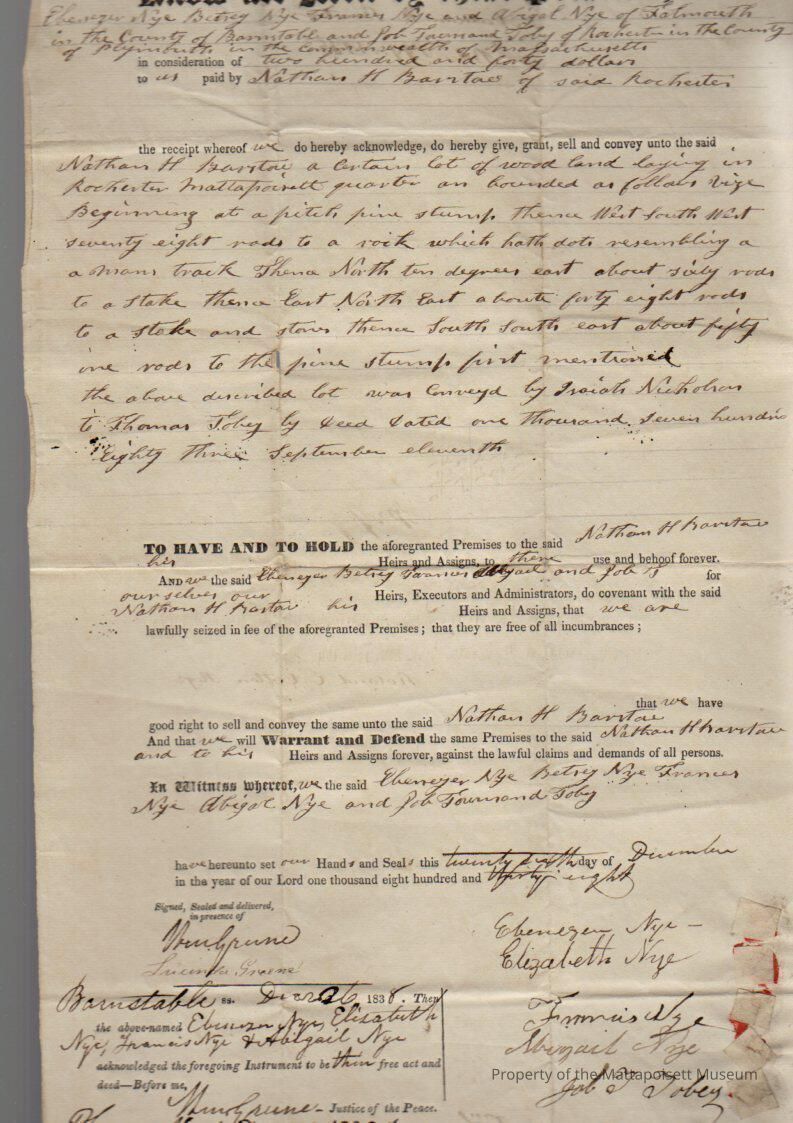 Ebenezer Nye Betsey Nye Frances Nye and Abigal Nye of Falmouth
in the County of Barnstable and Job Townsand Toby of Rochester in the County
of Plymouth in the Commonwealth of Massachusetts
in consideration of two hundred and forty dollars
to us paid by Nathan H Barstow of said Rochester
the receipt whereof we do hereby acknowledge, do hereby give, grant, sell and convey unto the said
Nathan H Barstow a Certain lot of wood land laying in
Rochester Mattapoisett quarter an bounded as follows vize
Beginning at a pitch pine stump thence West South West
seventy eight rods to a rock which hath dots resembling a
a mans track Thence North ten degrees east about sixty rods
to a stake thence East North East aboute forty eight rods
to a stake and stones thence South South east about fifty
one rods to the pine stump first mentioned
the above discribed lot was Conveyd by Isaiah Nicholson
to Thomas Tobey by deed dated one thousand Seven hundred
Eighty three September eleventh
TO HAVE AND TO HOLD the aforegranted Premises to the said Nathan H Barstow
his Heirs and Assigns, to there use and behoof forever.
AND we the said Ebenezer Betsey Frances Abigail and Job T for
ourselves our Heirs, Executors and Administrators, do covenant with the said
Nathan H Barstow his Heirs and Assigns, that we are
lawfully seized in fee of the aforegranted Premises; that they are free of all incumbrances;
that we have
good right to sell and convey the same unto the said Nathan H Barstow
And that we will Warrant and Defend the same Premises to the said Nathan H Barstow
and to his Heirs and Assigns forever, against the lawful claims and demands of all persons.
In Witness whereof, we the said Ebenezer Nye Betsey Nye Frances
Nye Abigal Nye and Job Townsand Toby
have hereunto set our Hands and Seals this twenty sixth day of December
in the year of our Lord one thousand eight hundred and thirty eight
Signed, Sealed and delivered,
in presence of
Wm Greene
Lucinda Greene
Ebenezer Nye
Elizabeth Nye
Francis Nye
Abigail Nye
Job T Tobey.
Barnstable ss. Dec 26 1838. Then
the above-named Ebenezer Nye, Elizabeth
Nye, Francis Nye & Abigail Nye
acknowledged the foregoing Instrument to be their free act and
deed—Before me,
Wm Greene - Justice of the Peace.
Property of the Mattapoisett Museum